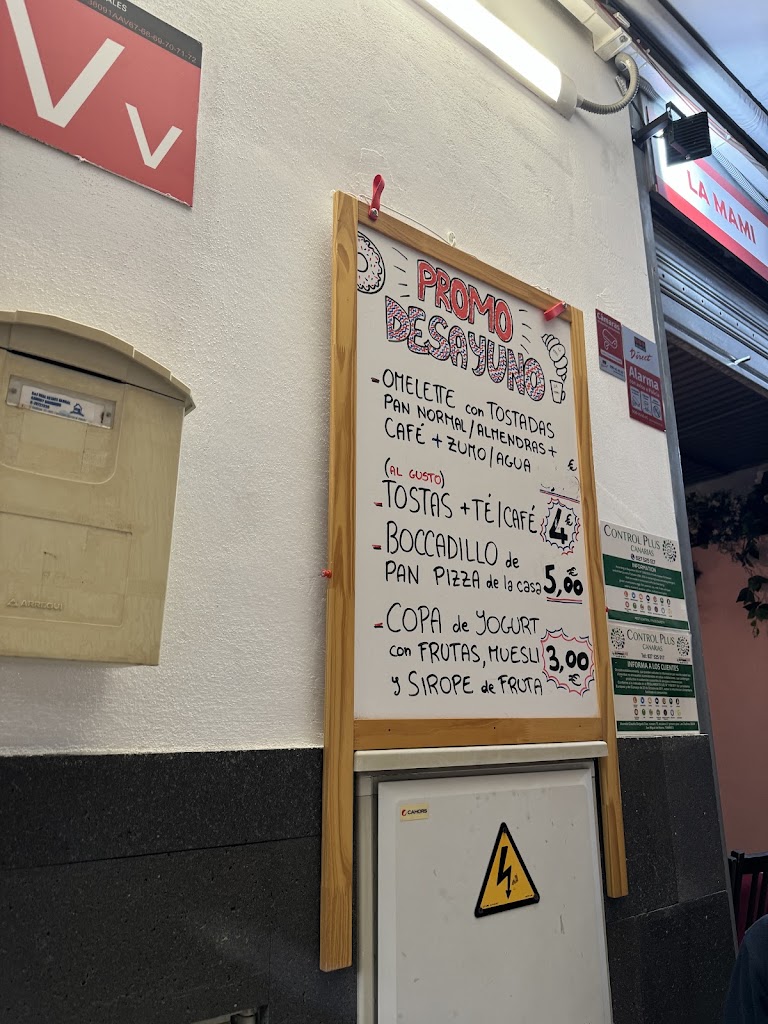 V
v
LA MAMI
PROMO
DESAYUNO
- OMELETTE con TOSTADAS
PAN NORMAL/ALMENDRAS +
CAFÉ + ZUMO/AGUA €
(AL GUSTO)
- TOSTAS + TÉ/CAFÉ 4€
- BOCCADILLO de
PAN PIZZA de la casa 5,00 €
- COPA de YOGURT
con FRUTAS, MUESLI 3,00 €
y SIROPE de FRUTA
Direct
Alarma
CONTROL PLUS
CANARIAS
INFORMATION
CONTROL PLUS
CANARIAS
INFORMA A LOS CLIENTES
ARREGUI
CAHORS